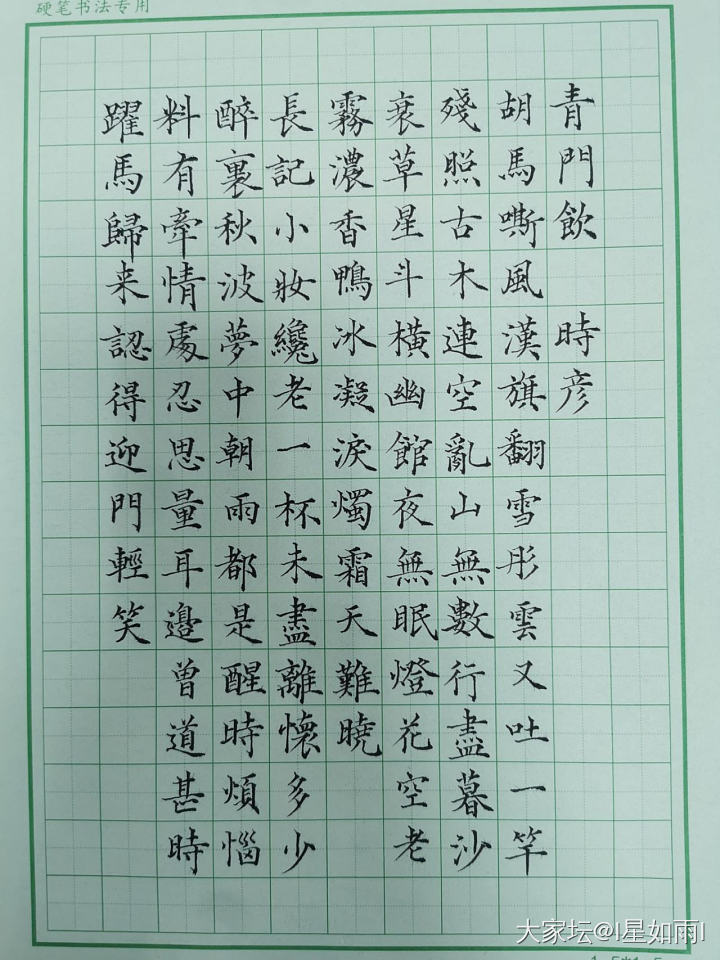 硬笔书法专用
青門飲 時彦
胡馬嘶風漢旗翻雪彤雲又吐一竿
殘照古木連空亂山無數行盡暮沙
衰草星斗橫幽館夜無眠燈花空老
霧濃香鴨冰凝淚燭霜天難曉
長記小妝纔老一杯未盡離懷多少
醉裏秋波夢中朝雨都是醒時煩惱
料有牽情處忍思量耳邊曾道甚時
躍馬歸来認得迎門輕笑
大家坛@l星如雨l